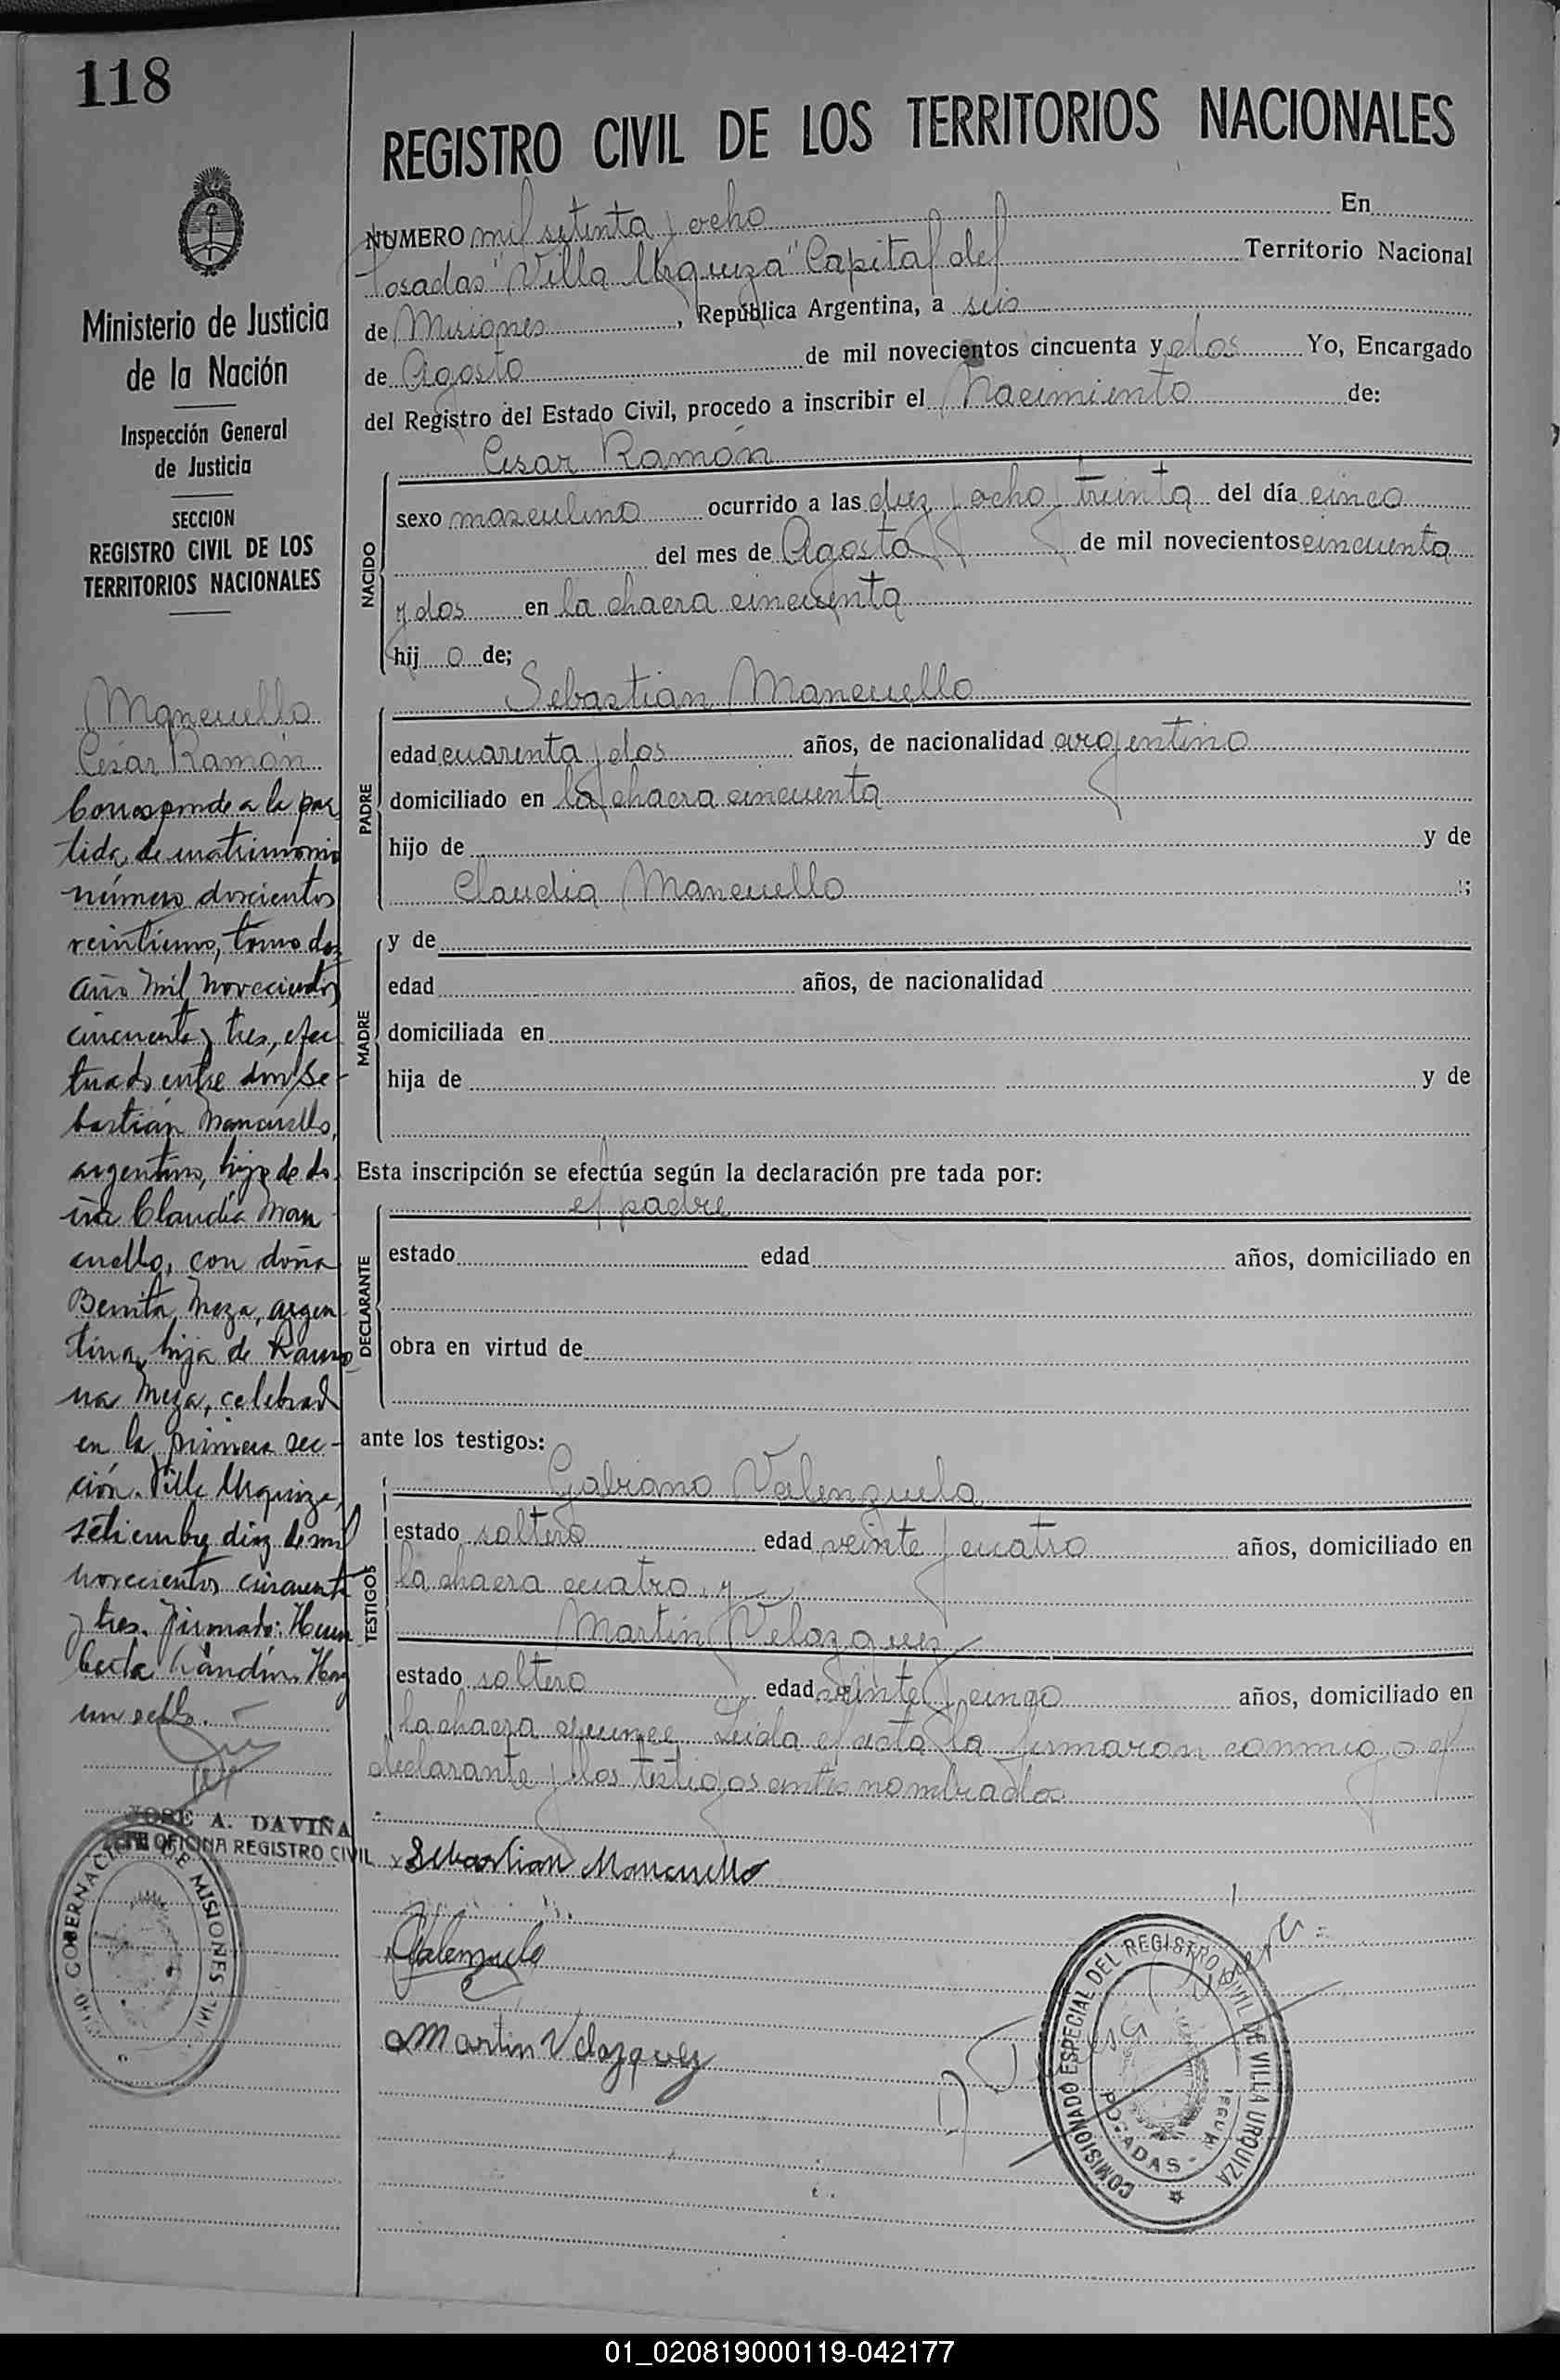 118
Ministerio de Justicia
de la Nación
Inspección General
de Justicia
SECCION
REGISTRO CIVIL DE LOS
TERRITORIOS NACIONALES
Mancuello
César Ramón
Corresponde a la par
tida de matrimonio
número doscientos
veintiuno, tomo dos
año mil novecientos
cincuenta y tres, efec
tuado entre don Se-
bastián Mancuello,
argentino, hijo de do-
ña Claudia Man
cuello, con doña
Benita Meza, argen-
tina, hija de Ramo-
na Meza, celebrad
en la primera sec-
ción. Villa Urquiza,
setiembre diez de mil
novecientos cincuenta
y tres. Firmado: Hum
berto Hay
un sello.
JOSE A. DAVIÑA
JEFE OFICINA REGISTRO CIVIL
GOBERNACION DE MISIONES
REGISTRO CIVIL DE LOS TERRITORIOS NACIONALES
NUMERO mil setenta y ocho En
Posadas "Villa Urquiza" Capital del Territorio Nacional
de Misiones, República Argentina, a seis
de Agosto de mil novecientos cincuenta y dos Yo, Encargado
del Registro del Estado Civil, procedo a inscribir el Nacimiento de:
César Ramón
NACIDO
sexo masculino ocurrido a las diez y ocho y treinta del día cinco
del mes de Agosto de mil novecientos cincuenta
y dos en la chacra cincuenta
hij o de;
Sebastian Mancuello
PADRE
edad cuarenta y dos años, de nacionalidad argentino
domiciliado en la chacra cincuenta
hijo de y de
Claudia Mancuello ;
MADRE
y de
edad años, de nacionalidad
domiciliada en
hija de y de
Esta inscripción se efectúa según la declaración pre tada por:
el padre
DECLARANTE
estado edad años, domiciliado en
obra en virtud de
ante los testigos:
Gabriano Valenzuela
TESTIGOS
estado soltero edad veinte y cuatro años, domiciliado en
la chacra cuatro y
Martin Velazquez
estado soltero edad veinte y cinco años, domiciliado en
la chacra quince Leida el acta la firmaron conmigo el
declarante y los testigos antes nombrados
Sebastian Mancuello
Valenzuela
Martin Velazquez
COMISIONADO ESPECIAL DEL REGISTRO CIVIL DE VILLA URQUIZA
POSADAS
01_020819000119-042177